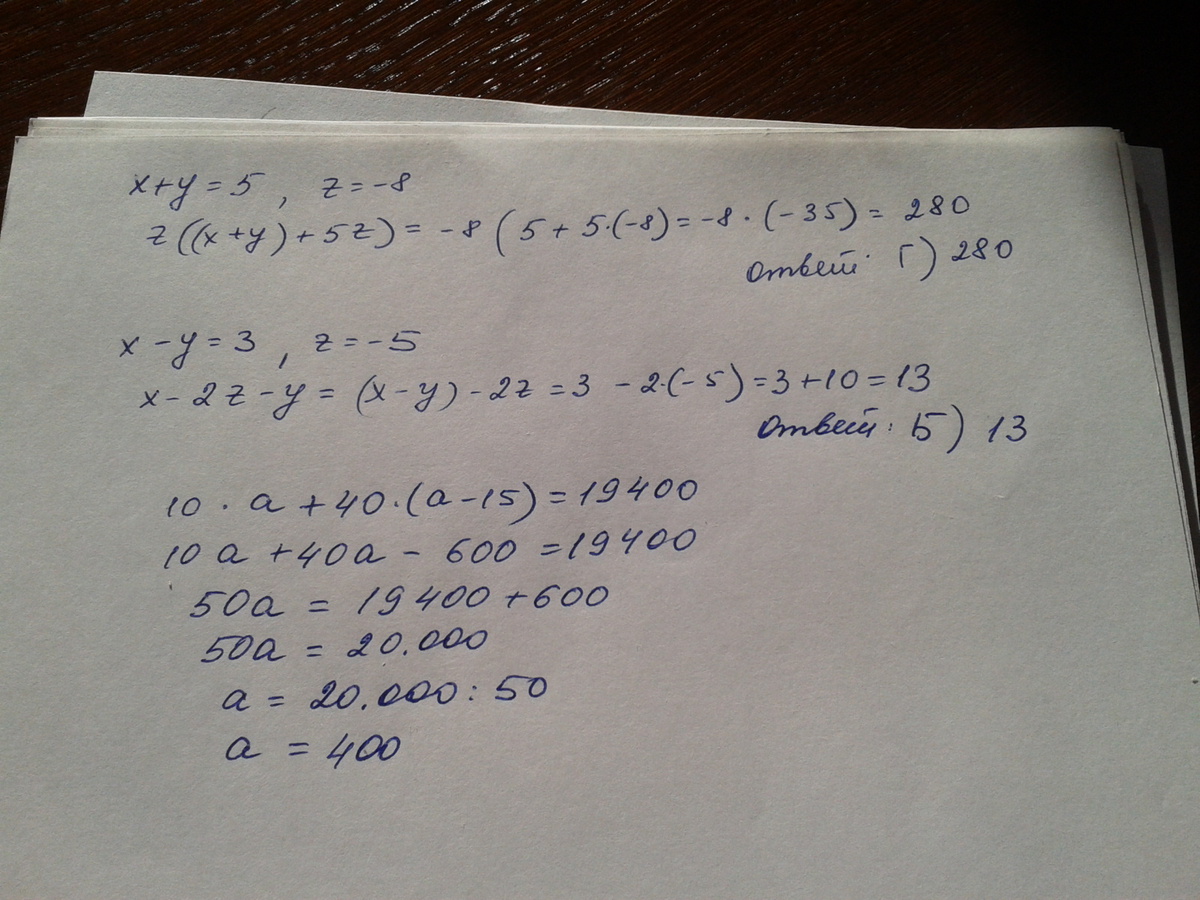 x+y=5, z=-8
z((x+y)+5z)= -8(5+5·(-8)=-8·(-35)= 280
ответ: Г) 280
x-y=3, z=-5
x-2z-y=(x-y)-2z=3-2·(-5)=3+10=13
ответ: Б) 13
10·a+40·(a-15)=19400
10a+40a-600=19400
50a=19400+600
50a=20.000
a=20.000:50
a=400